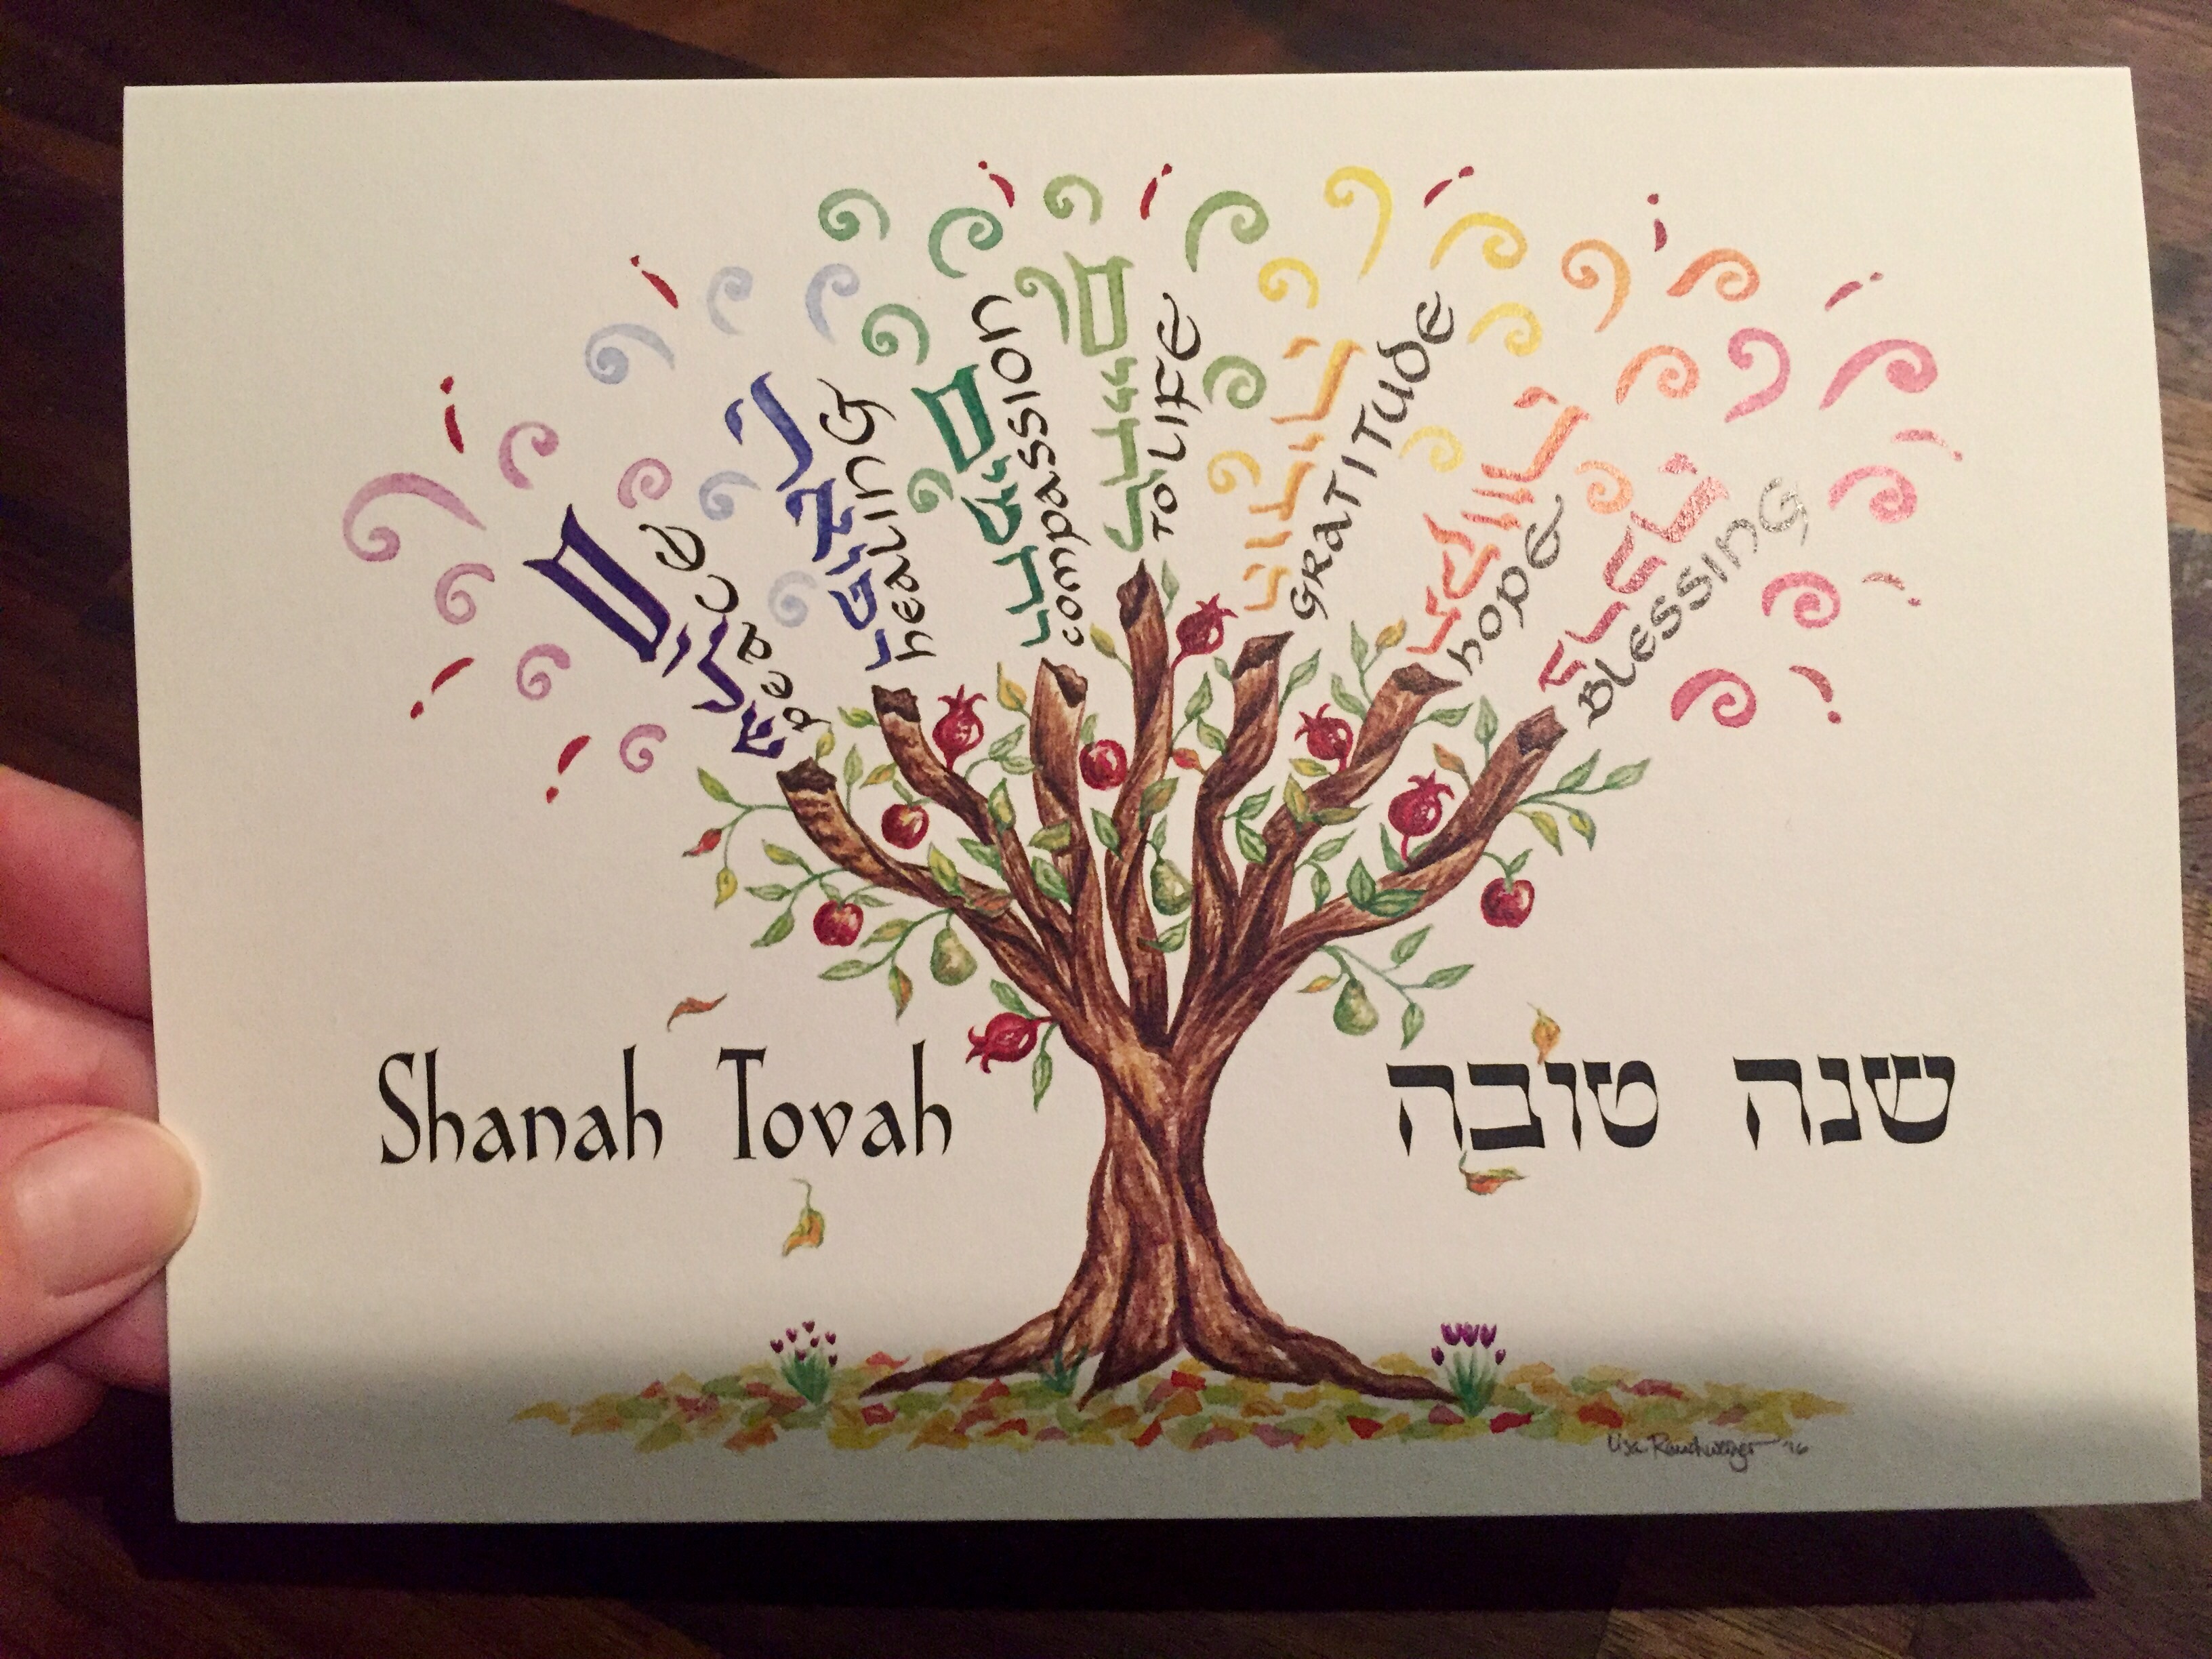 שלום
peace
healing
רחמים
compassion
לחיים
TO LIFE
GRATITUDE
hope
BLESSING
Shanah Tovah
שנה טובה
Lisa Rauchwerger '16